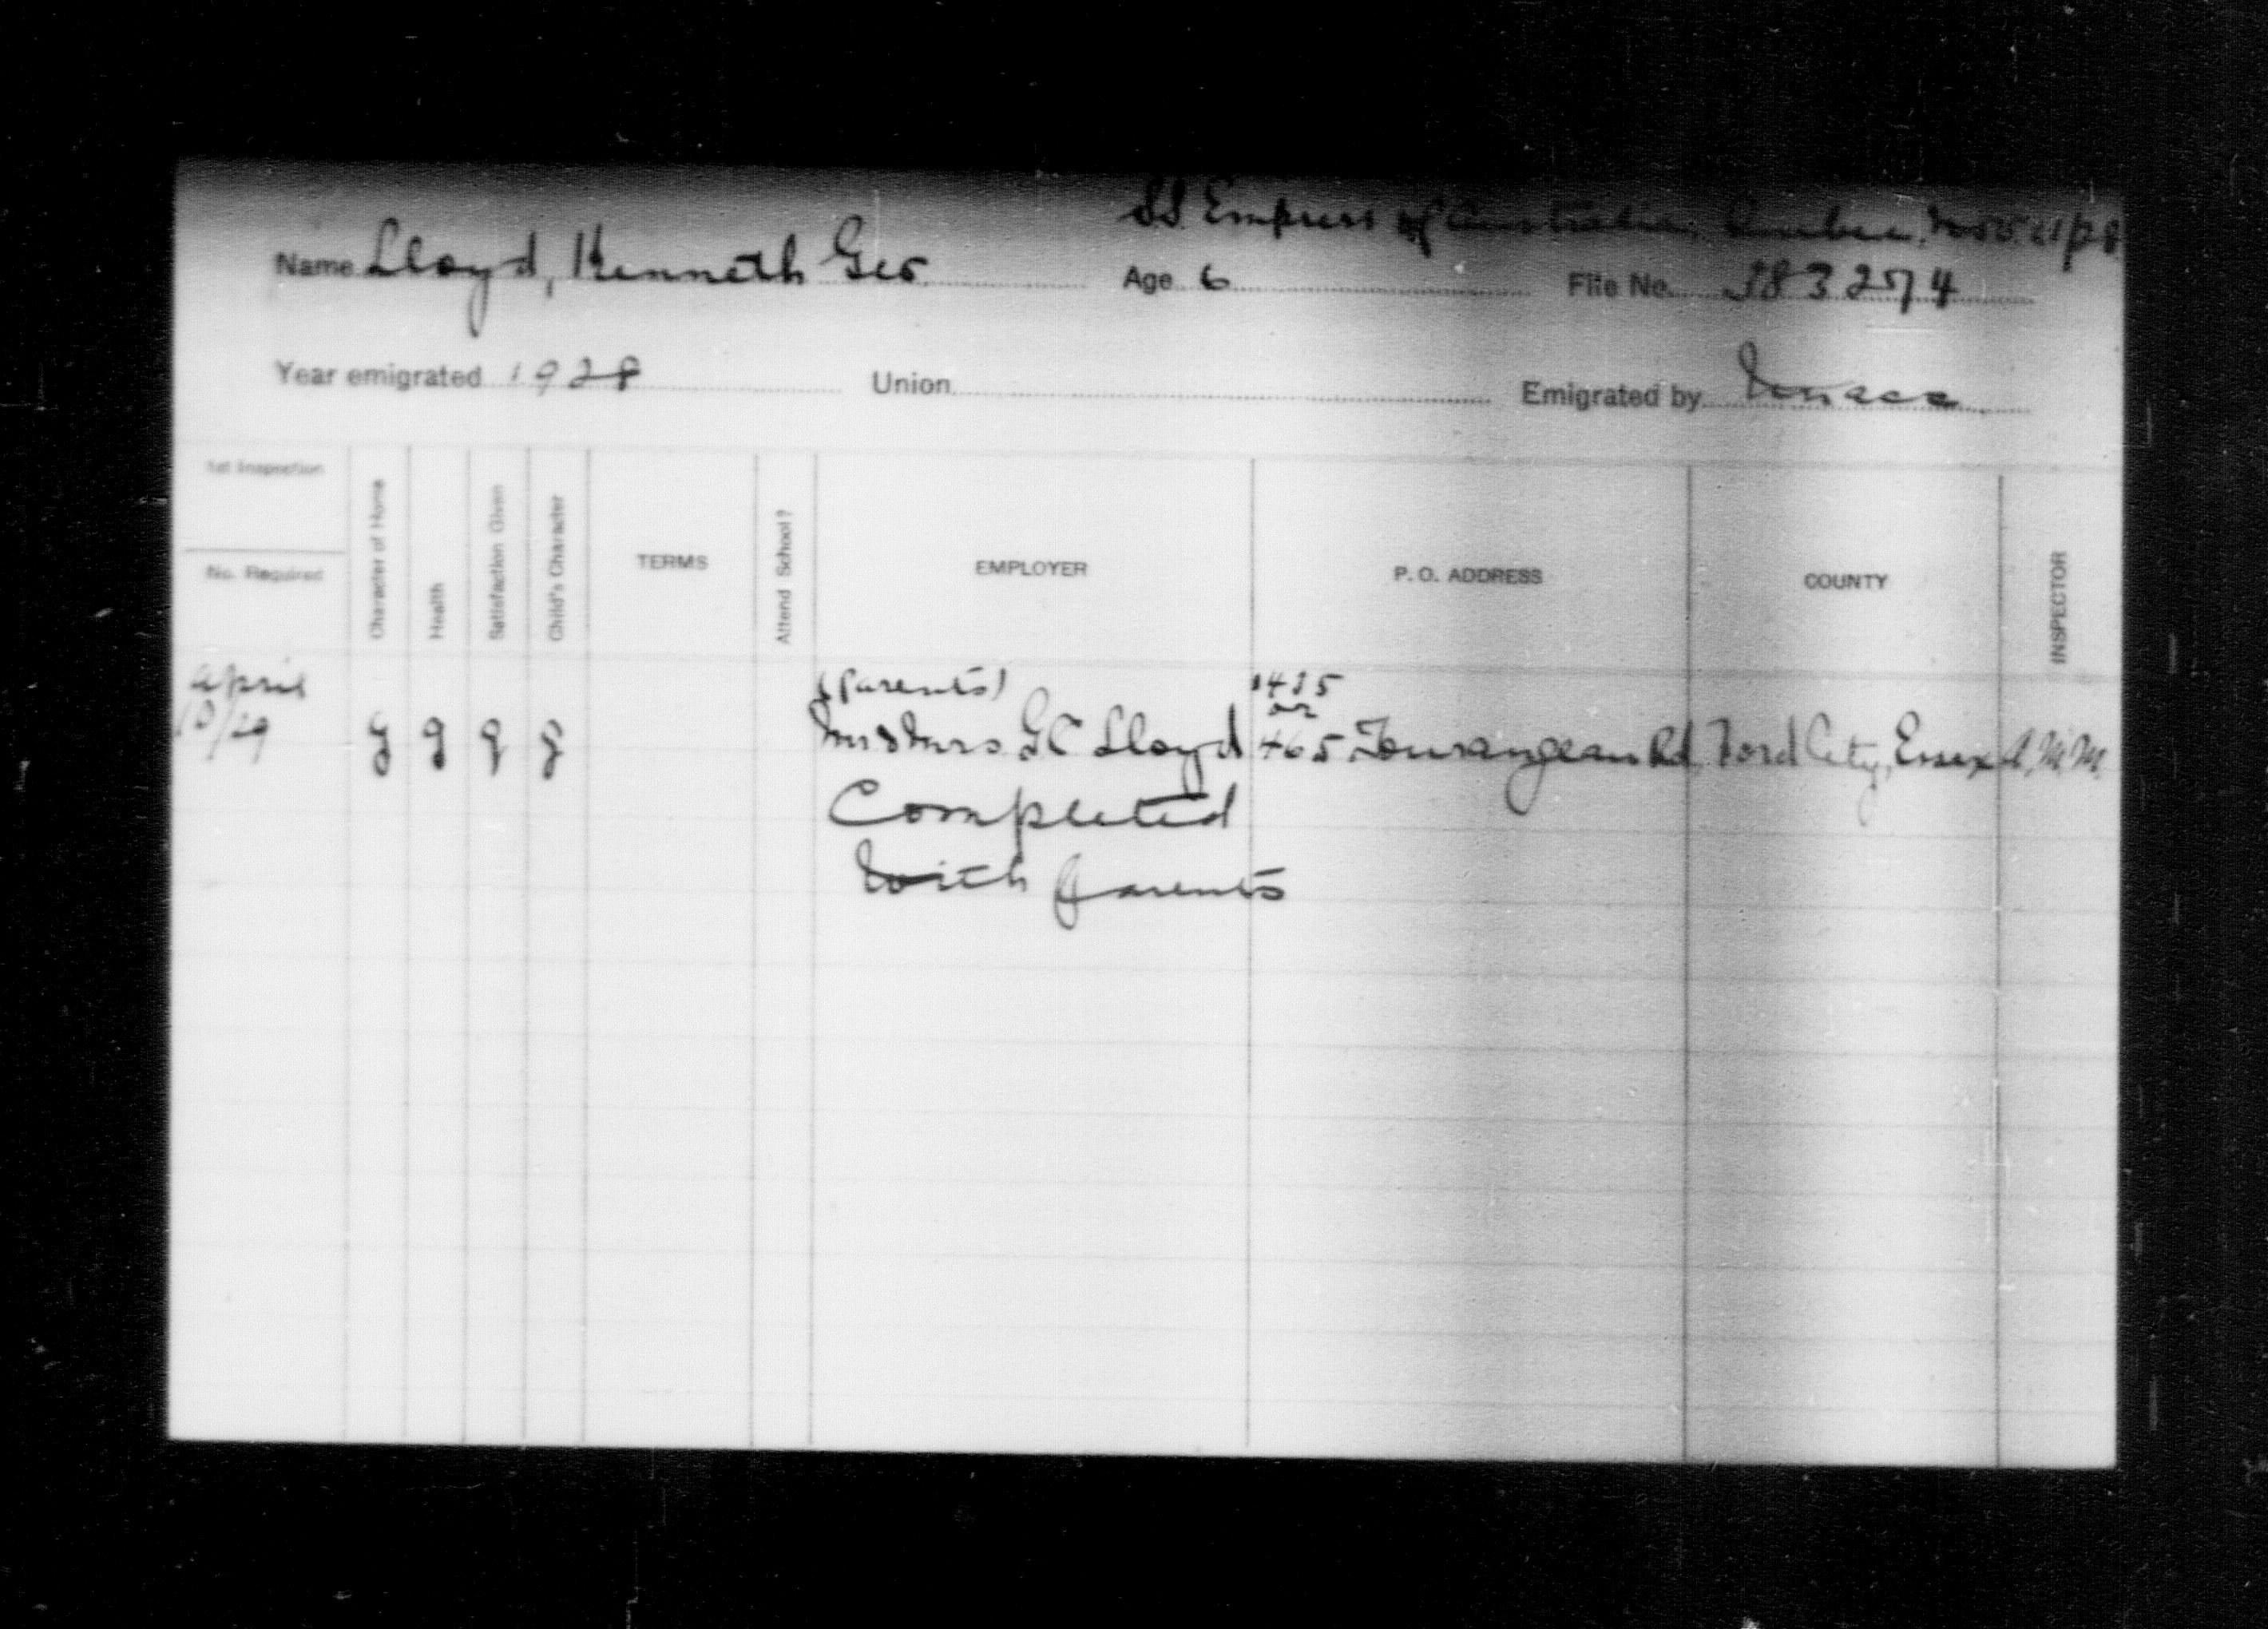 SS Empress of Australia, Quebec, Nov.
Name Lloyd, Kenneth Geo Age 6 File No.
Year emigrated 1928 Union Emigrated by
1st Inspection
No. Required
Character of Home
Health
Satisfaction Given
Child's Character
TERMS
Attend School?
EMPLOYER
P. O. ADDRESS
COUNTY
INSPECTOR
(Parents)
April
or
g g g g Mr & Mrs. G C Lloyd 465 Tourangeau Rd, Ford City, Essex A.M.M.
Completed
With parents